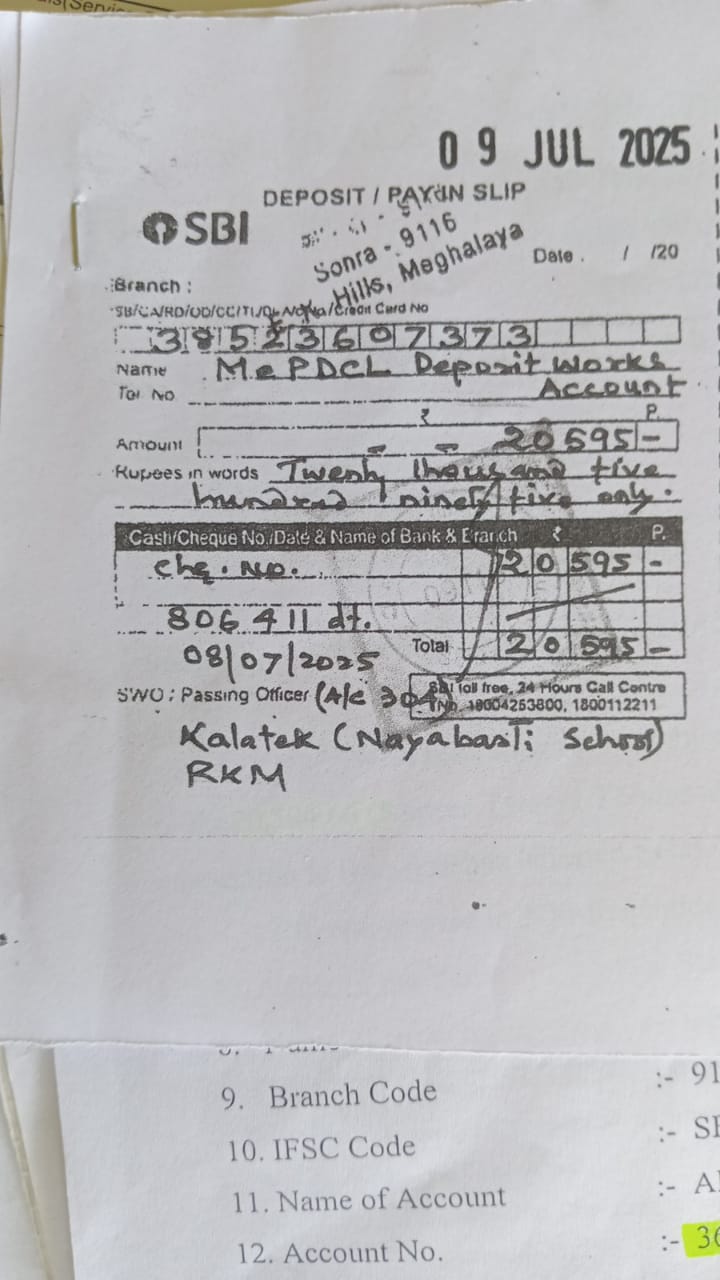 09 JUL 2025
DEPOSIT / PAY-IN SLIP
SBI
Sonra - 9116
Hills, Meghalaya
Date . / /20
Branch :
/Credit Card No
38523607373
Name MePDCL Deposit Works
Tel No Account
₹ P.
Amount 20595-
Rupees in words Twenty thousand five
hundred ninety five only.
Cash/Cheque No./Date & Name of Bank & Branch ₹ P.
Chq. No. 20595-
806411 dt.
08/07/2025 Total 20595-
SWO : Passing Officer (A/c
SBI Toll free, 24 Hours Call Centre
No. 18004253800, 1800112211
Kalatek (Nayabasti School)
RKM
9. Branch Code :- 91
10. IFSC Code :- S
11. Name of Account :- A
12. Account No. :- 36